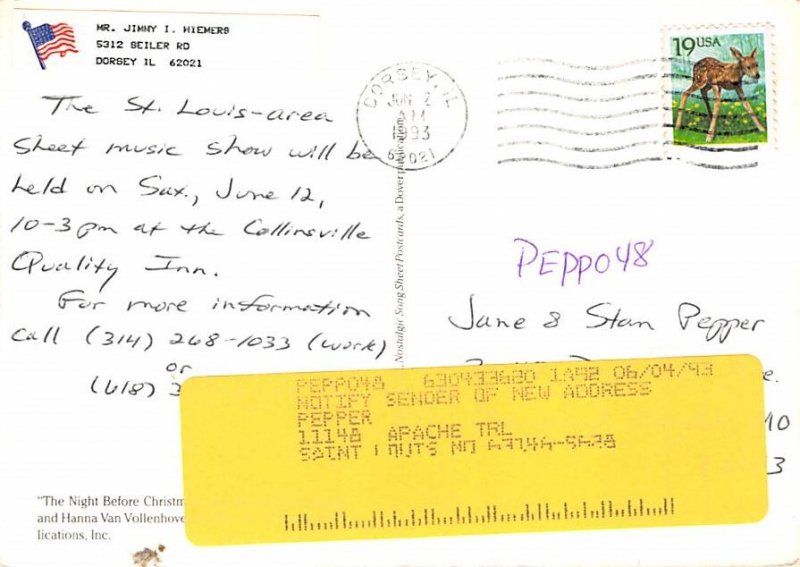 MR. JIMMY I. WIEMERS
5312 SEILER RD
DORSEY IL 62021
The St. Louis-area
sheet music show will be
held on Sat., June 12,
10-3 pm at the Collinsville
Quality Inn.
For more information
call (314) 268-1033 (work)
or
(618) 3
"The Night Before Christm
and Hanna Van Vollenhove
lications, Inc.
Nostalgic Song Sheet Postcards, a Dover publication
DORSEY, IL
JUN 2
AM
1993
62021
19USA
PEPPO48
Jane & Stan Pepper
e.
MO
3
PEPP048 630433620 1A92 06/04/93
NOTIFY SENDER OF NEW ADDRESS
PEPPER
11148 APACHE TRL
SAINT LOUIS MO 63146-5628